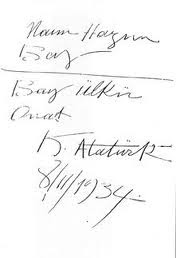 Naim Hazım
Bay
Bay Ülkü
Onat
K. Atatürk
8/II/1934